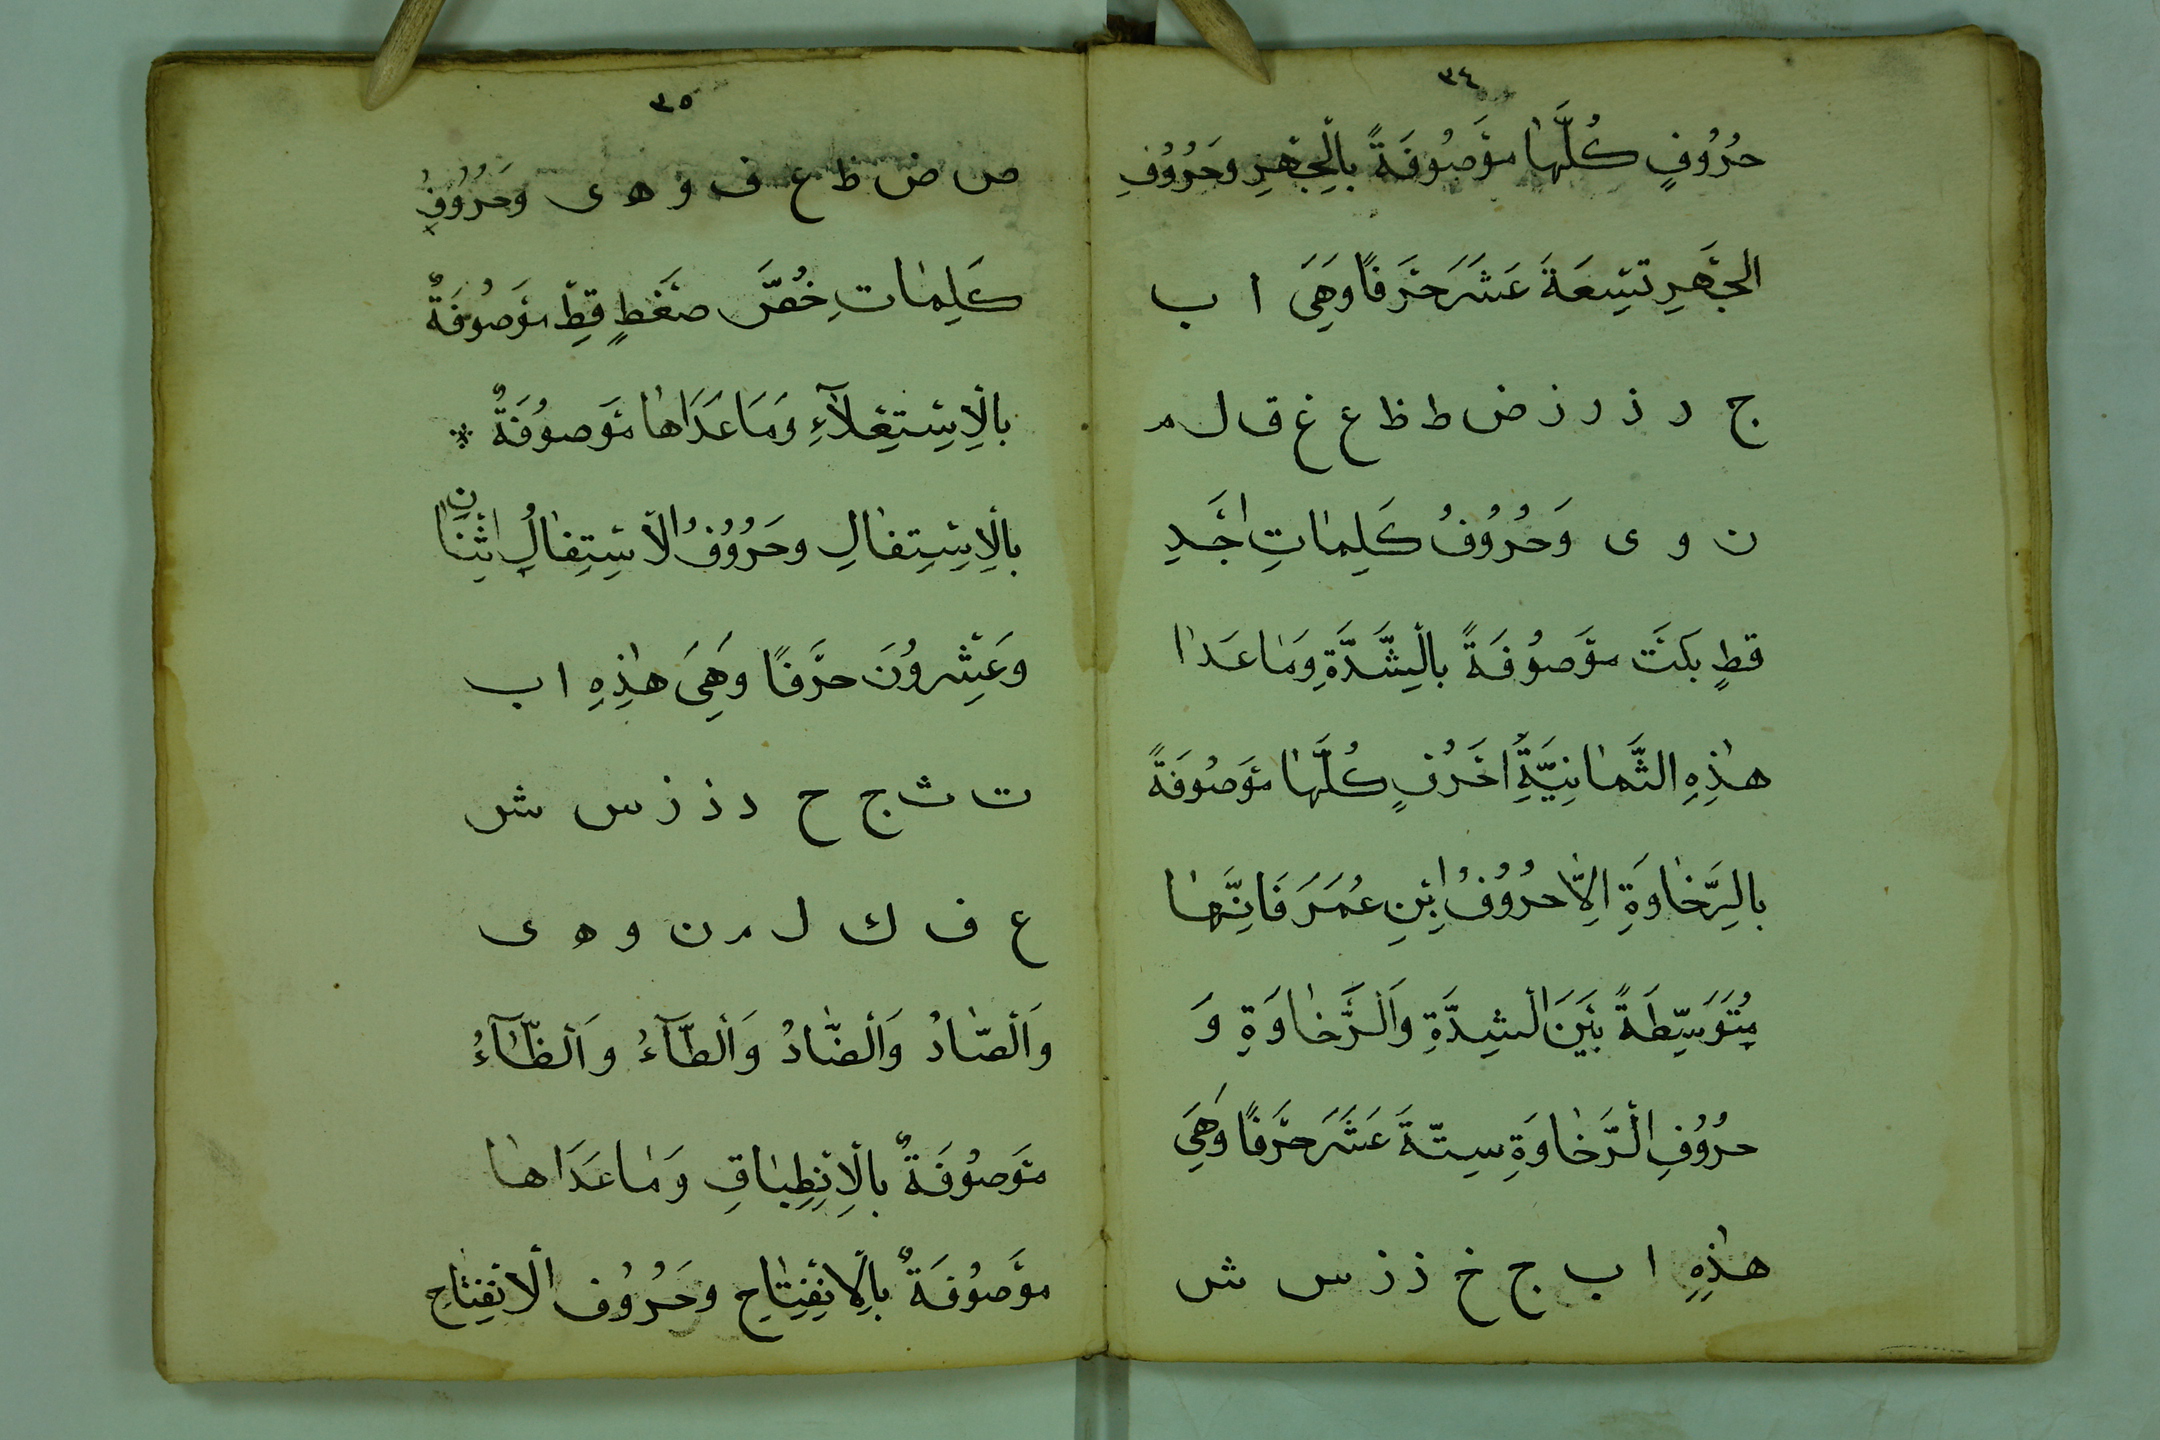 ٣٤
حُرُوُفٍ كُلَّهَا مَوْصُوُفَةً بِالْجَهْرِ وَحُرُوُفِ
الْجَهْرِ تِسْعَةَ عَشَرَ حَرْفًا وَهِيَ ا ب
ج د ذ ر ز ض ط ظ ع غ ق ل م
ن و ى وَحُرُوُفُ كَلِمَاتِ اَجَدِ
قطٍ بَكَتْ مَوْصُوُفَةً بِالْشَّدَّةِ وَمَا عَدَا
هٰذِهِ الثَّمَانِيَّةَ اَحْرُفٍ كُلَّهَا مَوْصُوُفَةً
بِالرَّخَاوَةِ اِلاَّ حُرُوُفُ اِبْنِ عُمَرَ فَاِنَّهَا
مُتَوَسِّطَةً بَيْنَ الْشِدَّةِ وَالْرَّخَاوَةِ وَ
حُرُوُفِ الْرَّخَاوَةِ سِتَّةَ عَشَرَ حَرْفًا وَهِيَ
هٰذِهِ ا ب ج خ ذ ز س ش
٣٥
ص ض ظ ع ف و ه ى وَحُرُوُفُ
كَلِمَاتِ خُصَّ ضَغْطٍ قِظْ مَوْصُوُفَةٌ
بِالْاِسْتِعْلَآءِ وَمَا عَدَاهَا مَوْصُوُفَةٌ
بِالْاِسْتِفَالِ وَحُرُوُفُ الْاِسْتِفَالِ اِثْنَانِ
وَعَشِرُوُنَ حَرْفًا وَهِيَ هٰذِهِ ا ب
ت ث ج ح د ذ ز س ش
ع ف ك ل م ن و ه ى
وَالْصَّادُ وَالْضَّادُ وَالْطَّآءُ وَالْظَّآءُ
مَوْصُوُفَةٌ بِالْاِنْطِبَاقِ وَمَا عَدَاهَا
مَوْصُوُفَةٌ بِالْاِنْفِتَاحِ وَحُرُوُف الْاِنْفِتَاحِ